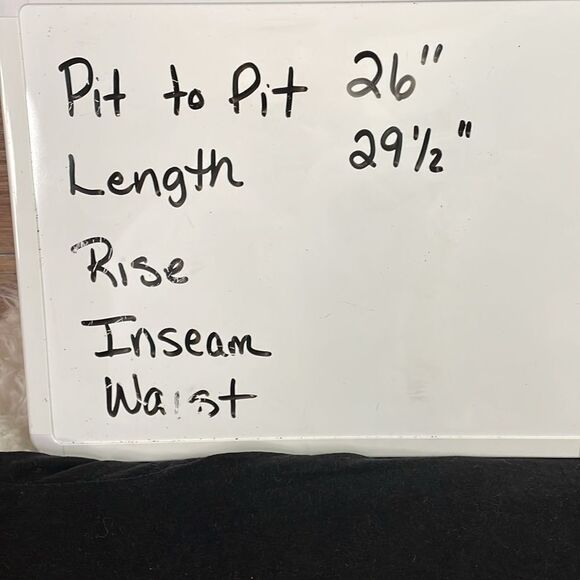 Pit to Pit 26"
Length 29 1/2"
Rise
Inseam
Waist